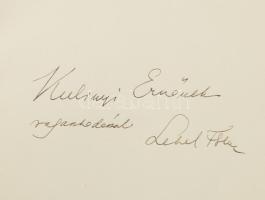 Kulinyi Ernőnek
ragaszkodással
Lehel Ferenc